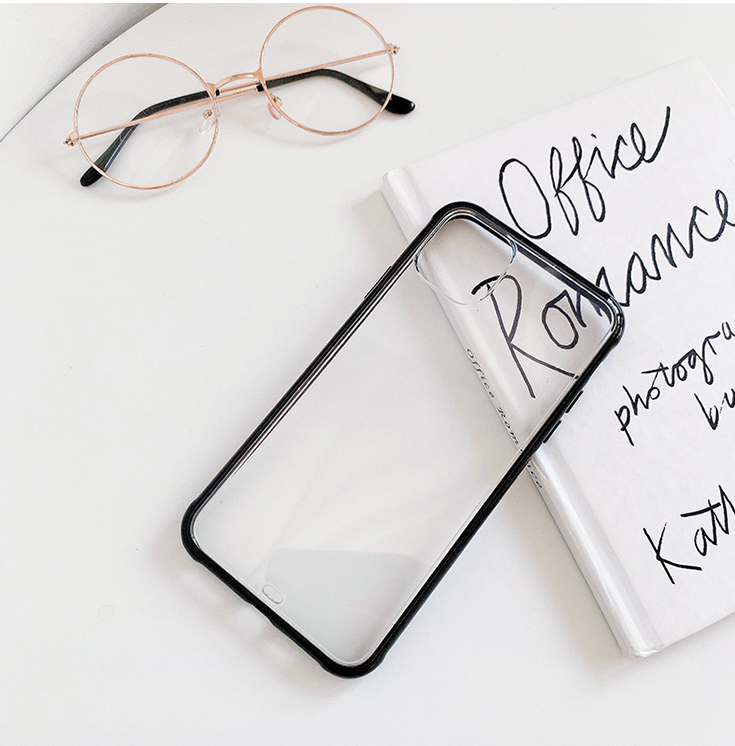 Office
Romance
photogra
by
Kath
Office Romance